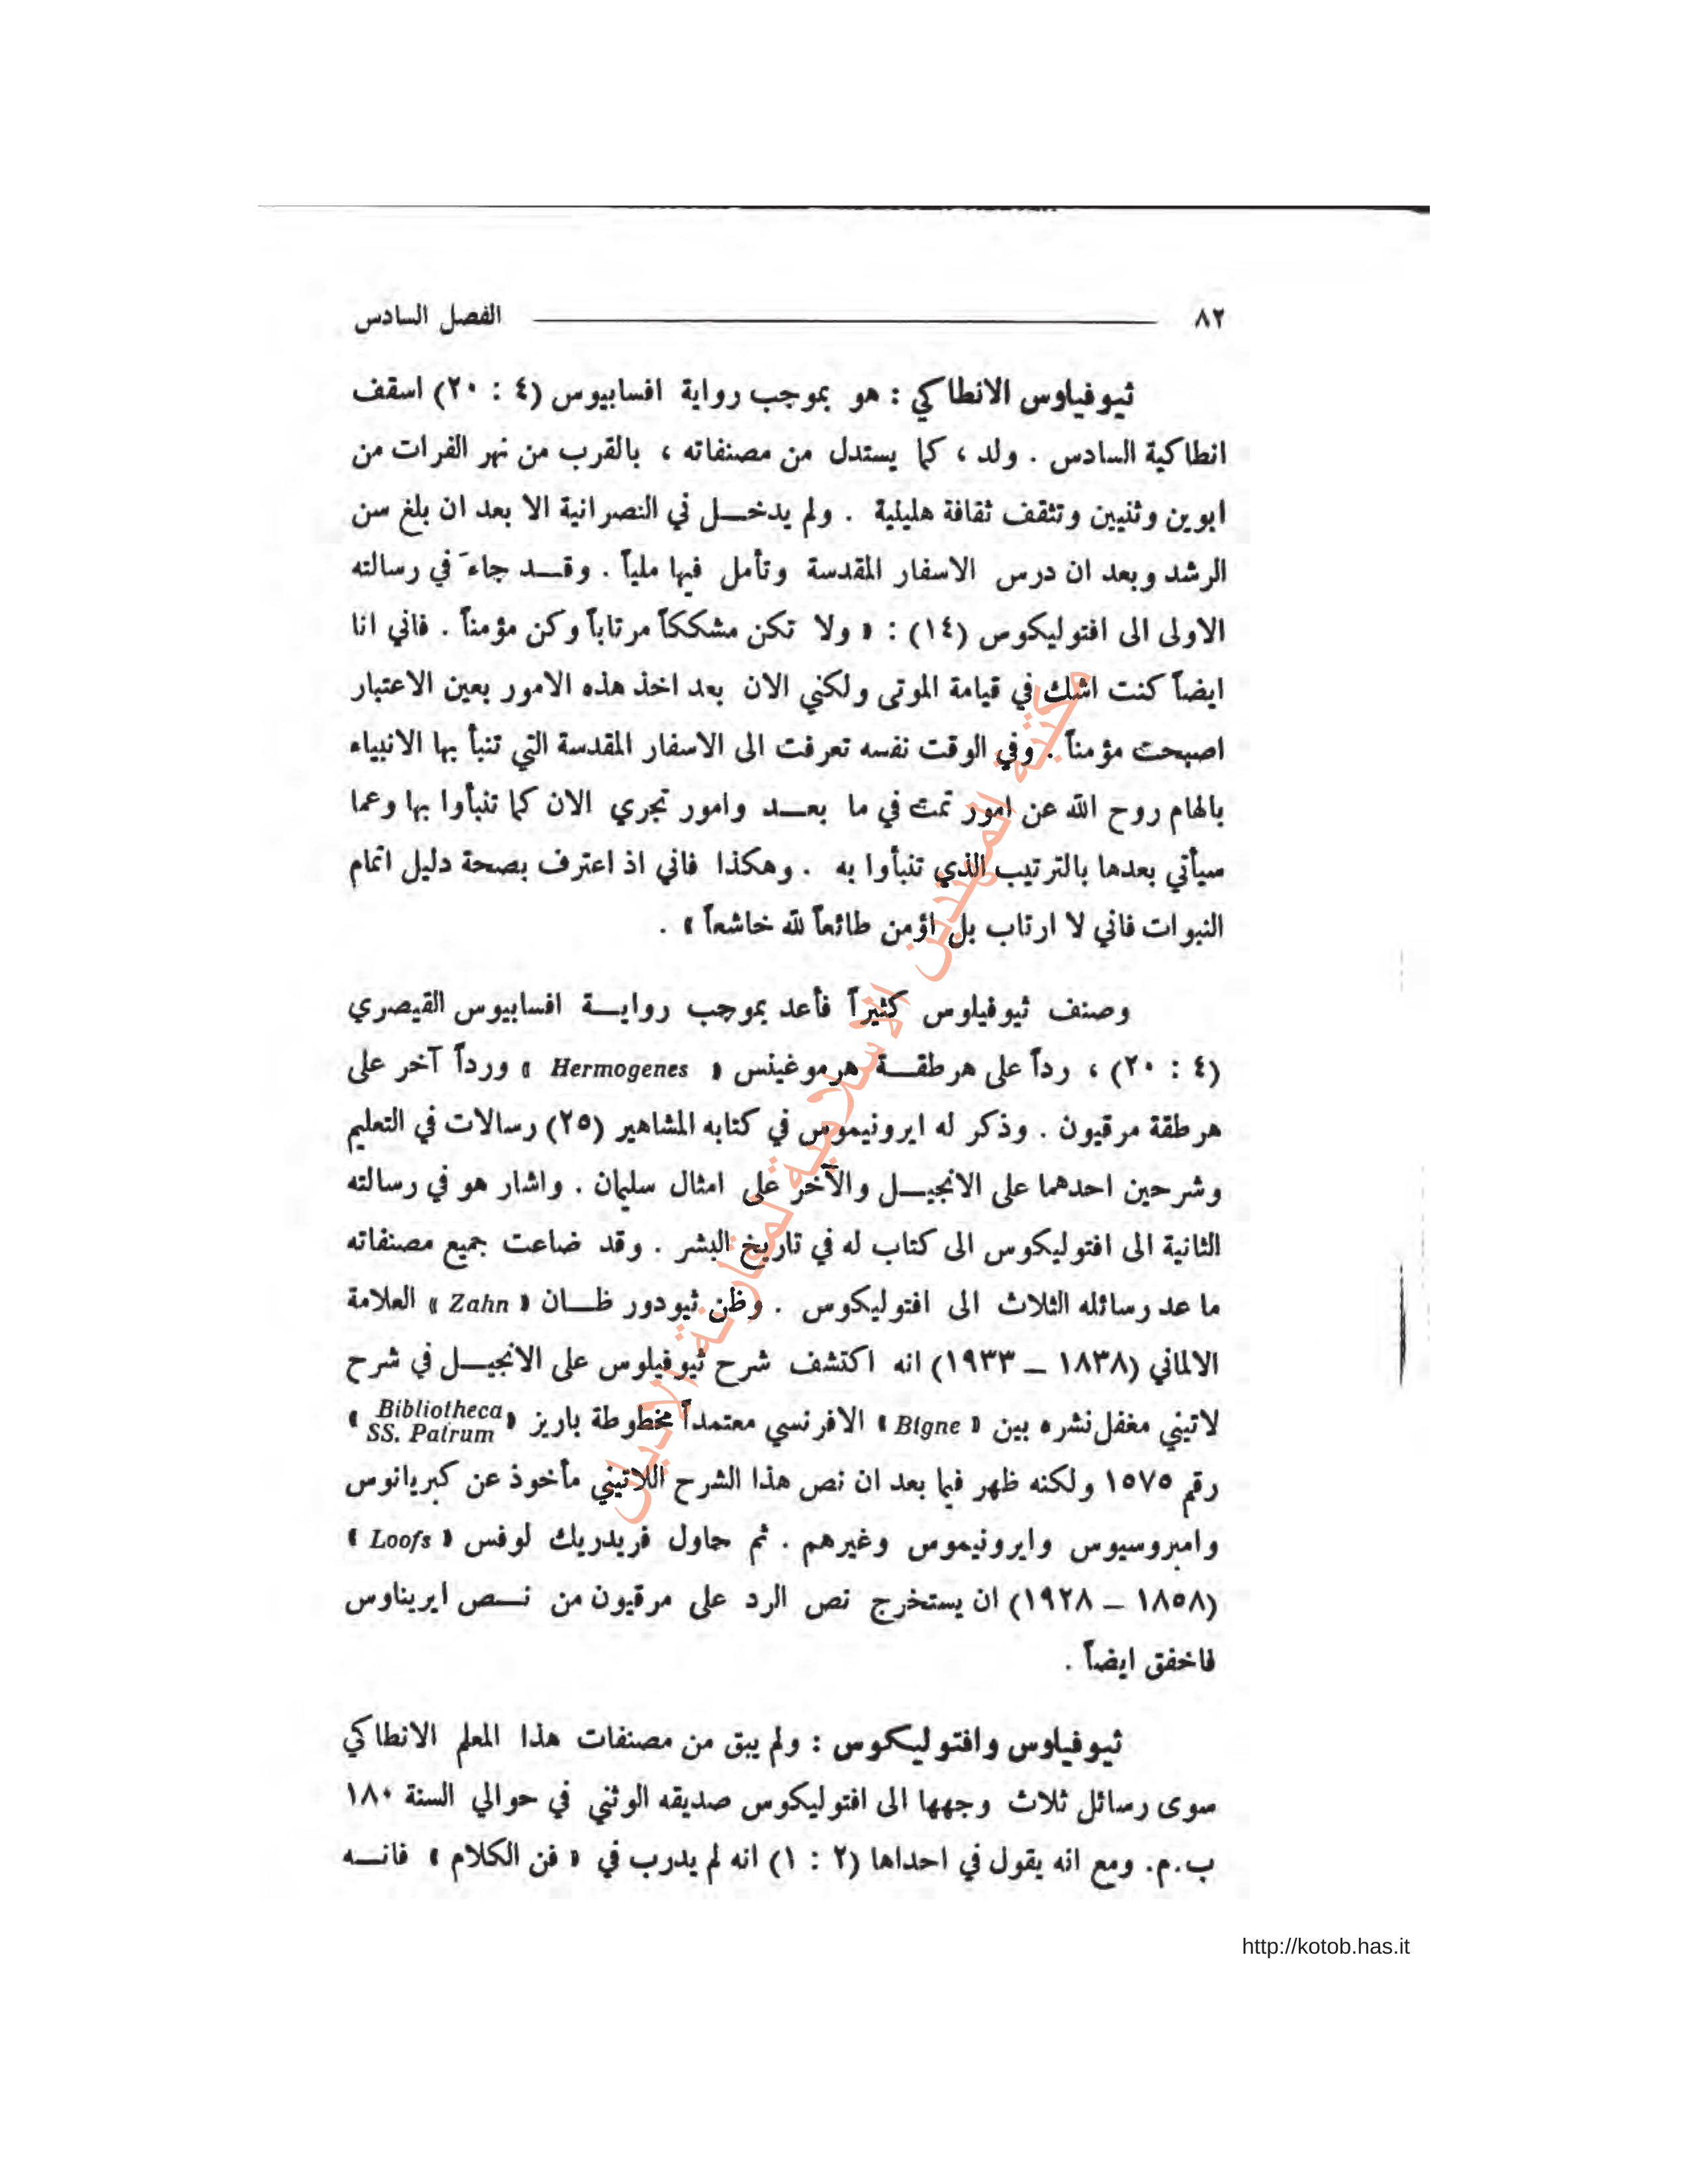 ٨٢ الفصل السادس
ثيوفيلوس الانطاكي : هو بموجب رواية افسابيوس (٤ : ٢٠) اسقف
انطاكية السادس . ولد ، كما يستدل من مصنفاته ، بالقرب من نهر الفرات من
ابوين وثنيين وتثقف ثقافة هلينية . ولم يدخـــل في النصرانية الا بعد ان بلغ سن
الرشد وبعد ان درس الاسفار المقدسة وتأمل فيها ملياً . وقـــد جاءَ في رسالته
الاولى الى افتوليكوس (١٤) : « ولا تكن مشككاً مرتاباً وكن مؤمناً . فاني انا
ايضاً كنت اشك في قيامة الموتى ولكني الان بعد اخذ هذه الامور بعين الاعتبار
اصبحت مؤمناً . وفي الوقت نفسه تعرفت الى الاسفار المقدسة التي تنبأ بها الانبياء
بالهام روح الله عن امور تمت في ما بعـــد وامور تجري الان كما تنبأوا بها وعما
سيأتي بعدها بالترتيب الذي تنبأوا به . وهكذا فاني اذ اعترف بصحة دليل اتمام
النبوات فاني لا ارتاب بل اؤمن طائعاً لله خاشعاً » .
وصنف ثيوفيلوس كثيراً فأعد بموجب روايـــة افسابيوس القيصري
(٤ : ٢٠) ، رداً على هرطقـــة هرموغينس « Hermogenes » ورداً آخر على
هرطقة مرقيون . وذكر له ايرونيموس في كتابه المشاهير (٢٥) رسالات في التعليم
وشرحين احدهما على الانجيـــل والآخر على امثال سليمان . واشار هو في رسالته
الثانية الى افتوليكوس الى كتاب له في تاريخ البشر . وقد ضاعت جميع مصنفاته
ما عد رسائله الثلاث الى افتوليكوس . وظن ثيودور ظـــان « Zahn » العلامة
الالماني (١٨٣٨ – ١٩٣٣) انه اكتشف شرح ثيوفيلوس على الانجيـــل في شرح
لاتيني مغفل نشره بين « Bigne » الافرنسي معتمداً مخطوطة باريز « Bibliotheca SS. Patrum »
رقم ١٥٧٥ ولكنه ظهر فيما بعد ان نص هذا الشرح اللاتيني مأخوذ عن كبريانوس
وامبروسيوس وايرونيموس وغيرهم . ثم حاول فريدريك لوفس « Loofs »
(١٨٥٨ – ١٩٢٨) ان يستخرج نص الرد على مرقيون من نـــص ايريناوس
فاخفق ايضاً .
ثيوفيلوس وافتوليكوس : ولم يبق من مصنفات هذا المعلم الانطاكي
سوى رسائل ثلاث وجهها الى افتوليكوس صديقه الوثني في حوالي السنة ١٨٠
ب.م. ومع انه يقول في احداها (٢ : ١) انه لم يدرب في « فن الكلام » فانـــه
مكتبة المهتدين الاسلامية لمقارنة الاديان
http://kotob.has.it